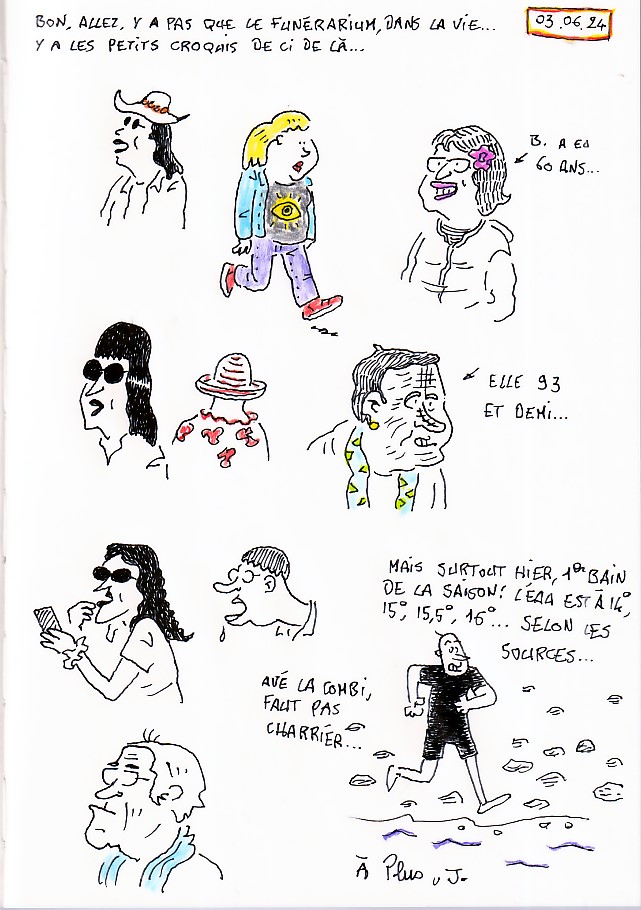 BON, ALLEZ, Y A PAS QUE LE FUNÉRARIUM, DANS LA VIE...
03.06.24
Y A LES PETITS CROQUIS DE CI DE LÀ...
B. A EU
60 ANS...
ELLE 93
ET DEMI...
MAIS SURTOUT HIER, 1er BAIN
DE LA SAISON! L'EAU EST À 14°,
15°, 15,5°, 16°... SELON LES
SOURCES...
AVÉ LA COMBI,
FAUT PAS
CHARRIER...
À Plus, J-